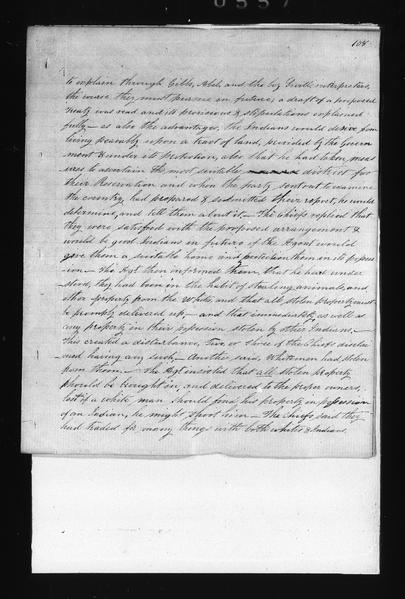 0557
108
to explain through Gibbs, Abel, and the big Smith interpreters,
the course they must pursue in future; a draft of a proposed
treaty was read and its provisions & stipulations explained
fully — as also the advantages, the Indians would derive from
living peaceably upon a tract of land, provided by the Govern
ment & under its Protection, also that he had taken meas
ures to ascertain the most suitable district for
their Reservation and when the party sent out to examine
the country, had prepared & submitted their report, he would
determine, and tell them about it — The Chiefs replied that
they were satisfied with the proposed arrangement &
would be good Indians in future if the Agent would
give them a suitable home and protection them in its posses
sion — The Agt then informed them that he had under
stood, they had been in the habit of stealing animals, and
other property from the White, and that all stolen property must
be promptly delivered up — and that immediately as well as
any property in their possession stolen by other Indians. —
This created a disturbance, two or three of the Chiefs disclai
med having any such — Another said, Whitemen had stolen
from them. — The Agt insisted that all stolen property
should be brought in, and delivered to the proper owners,
lest if a white man should find his property in possession
of an Indian, he might shoot him — The Chiefs, said they
had traded for many things with both whites & Indians.